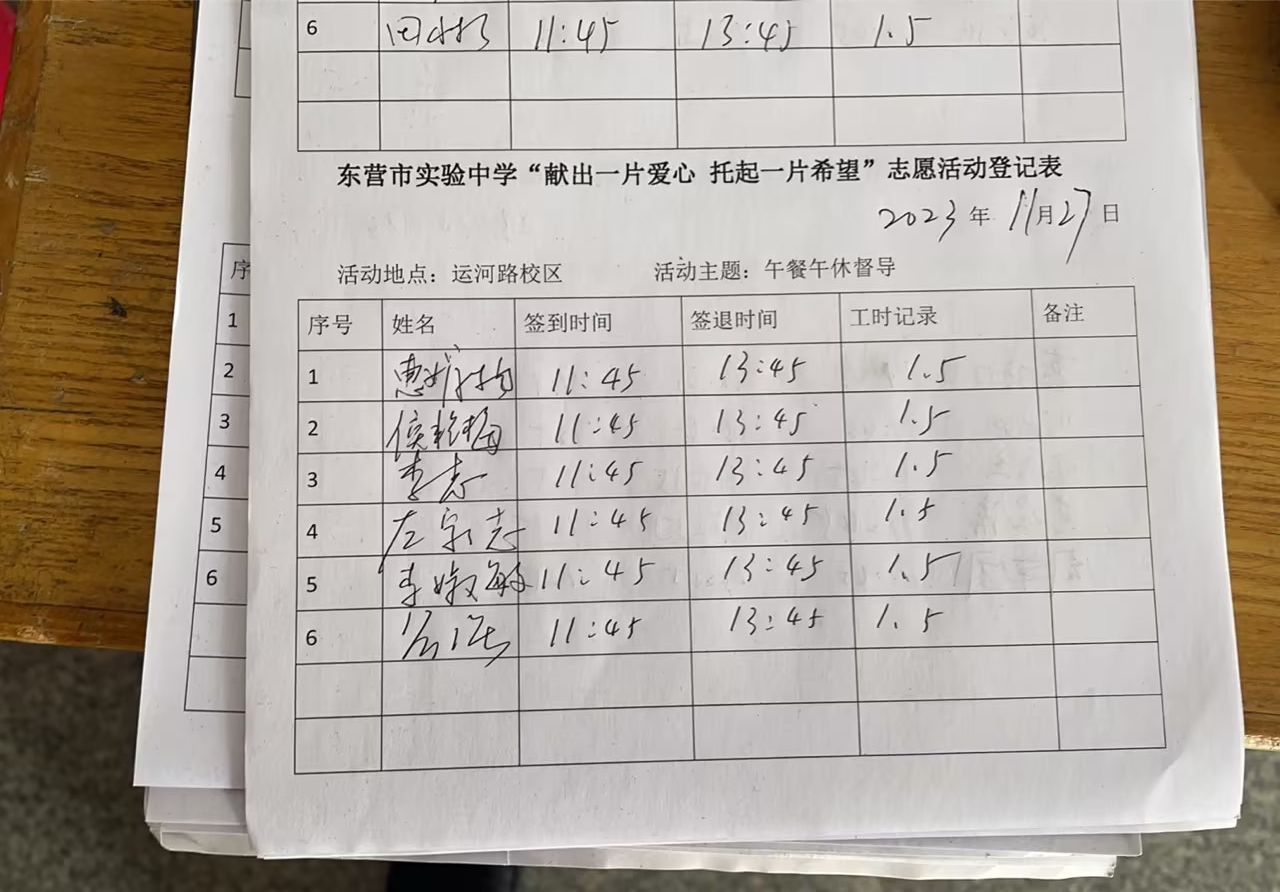 6 田 11:45 13:45 1.5
东营市实验中学“献出一片爱心 托起一片希望”志愿活动登记表
2023年 11月27日
活动地点：运河路校区 活动主题：午餐午休督导
序号 姓名 签到时间 签退时间 工时记录 备注
1 惠 11:45 13:45 1.5
2 侯艳梅 11:45 13:45 1.5
3 李志 11:45 13:45 1.5
4 左宗志 11:45 13:45 1.5
5 李嫩敏 11:45 13:45 1.5
6 11:45 13:45 1.5
序
1
2
3
4
5
6